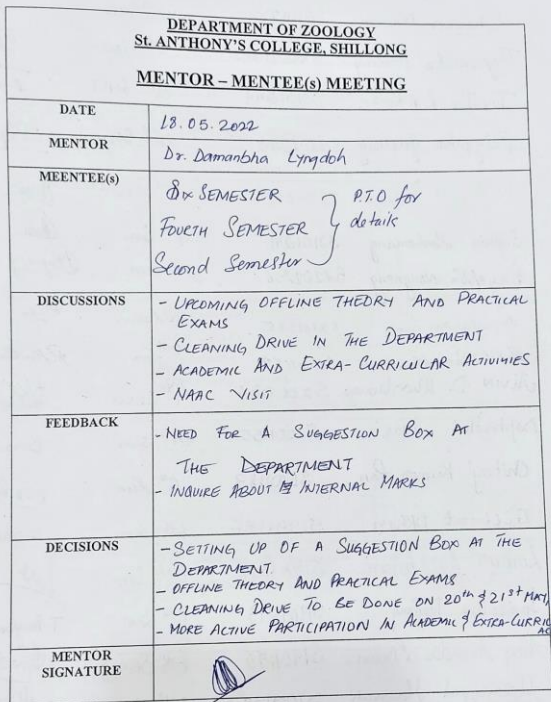 DEPARTMENT OF ZOOLOGY
St. ANTHONY'S COLLEGE, SHILLONG
MENTOR – MENTEE(s) MEETING
DATE
18.05.2022
MENTOR
Dr. Damanbha Lyngdoh
MEENTEE(s)
Six SEMESTER
FOURTH SEMESTER
Second Semester
P.T.O for
details
DISCUSSIONS
- UPCOMING OFFLINE THEORY AND PRACTICAL
EXAMS
- CLEANING DRIVE IN THE DEPARTMENT
- ACADEMIC AND EXTRA-CURRICULAR ACTIVITIES
- NAAC VISIT
FEEDBACK
- NEED FOR A SUGGESTION BOX AT
THE DEPARTMENT
- INQUIRE ABOUT INTERNAL MARKS
DECISIONS
- SETTING UP OF A SUGGESTION BOX AT THE
DEPARTMENT
- OFFLINE THEORY AND PRACTICAL EXAMS
- CLEANING DRIVE TO BE DONE ON 20th & 21st MAY,
- MORE ACTIVE PARTICIPATION IN ACADEMIC & EXTRA-CURRIC
AC
MENTOR
SIGNATURE